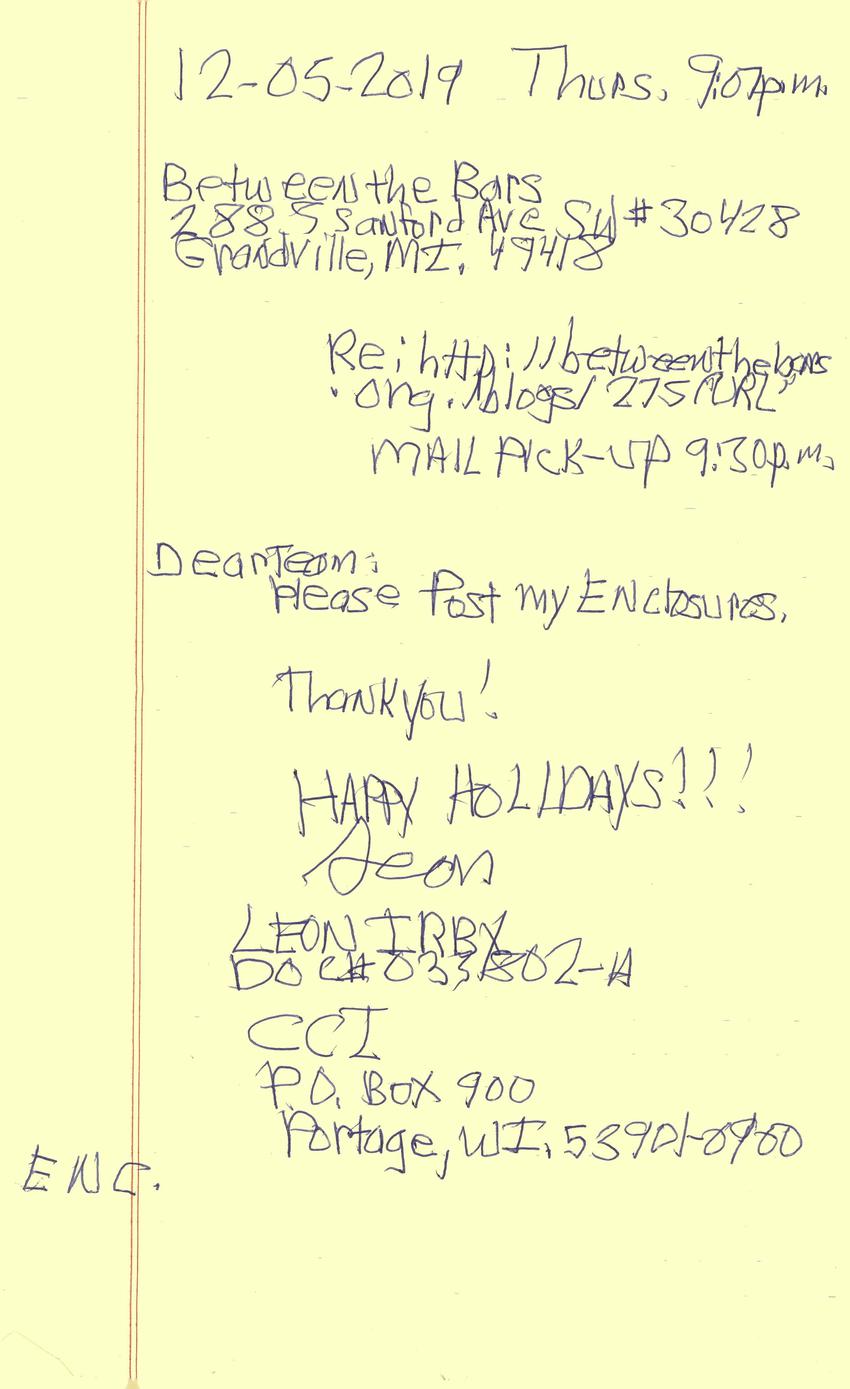 12-05-2019 Thurs. 9:07p.m.
Between the Bars
2885 Sanford Ave SW #30428
Grandville, MI. 49418
Re: http://betweenthebars
.org./blogs/275/URL
MAIL PICK-UP 9:30p.m.
Dear Team:
Please Post my ENclosures.
Thank you!
HAPPY HOLIDAYS!!!
Leon
LEON IRBY
DOC# 033802-A
CCI
P.O. BOX 900
Portage, WI. 53901-0900
ENC.